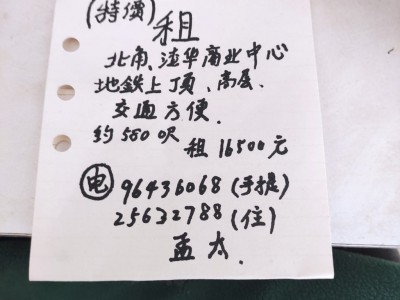 (特價)
租
北角、溎华商业中心
地鉄上頂、高层、
交通方便.
约580呎
租16500元
电 96436068(手提)
25632788(住)
孟太.